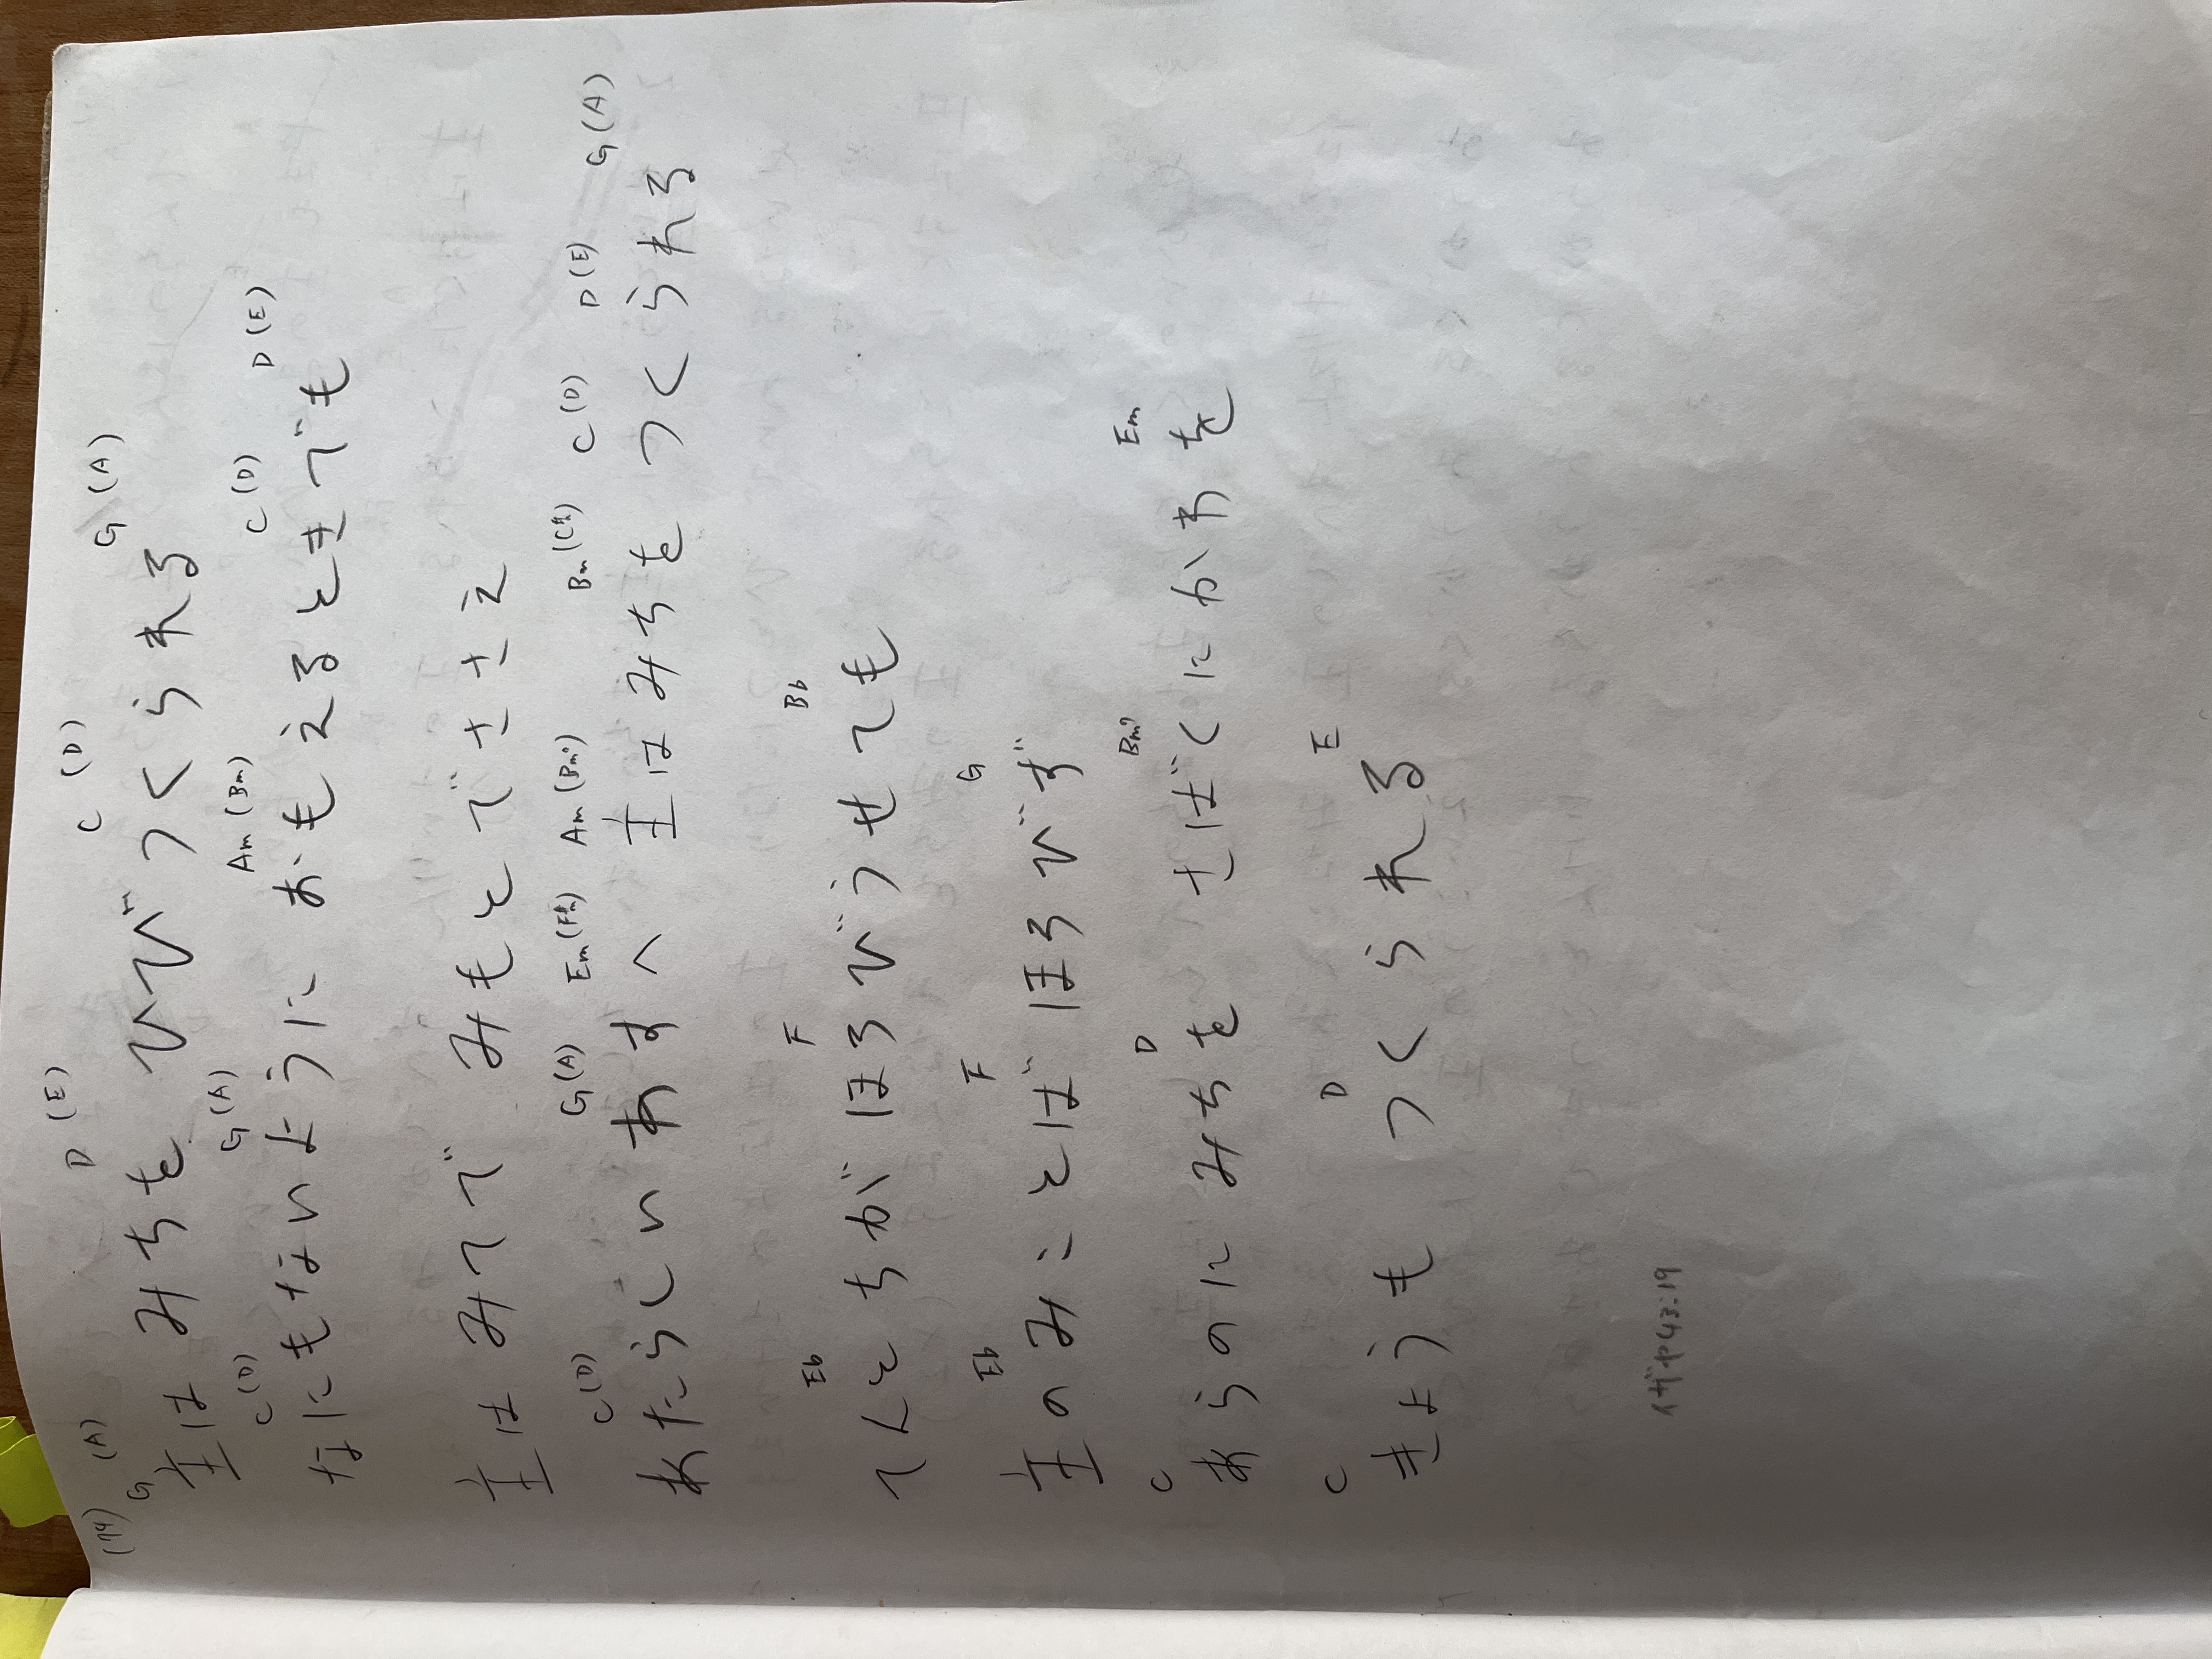 (74)
G (A) D (E) C (D) G (A)
主は みちを ひびつくられる
C(D) G(A) Am(Bm) C(D) D(E)
なにもないように おもえるときでも
主は みてで みもとでささえ
C(D) G(A) Em(F#m) Am(Bm) Bm(C#) C(D) D(E) G(A)
あたらしい あすへ 主はみちを つくられる
Eb F Bb
てんとちが ほろびうせても
Eb F G
主のみことばほろびず
C D Bm7 Em
あらのに みちを さばくにかわを
C D E
きょうも つくられる
イザヤ43:19